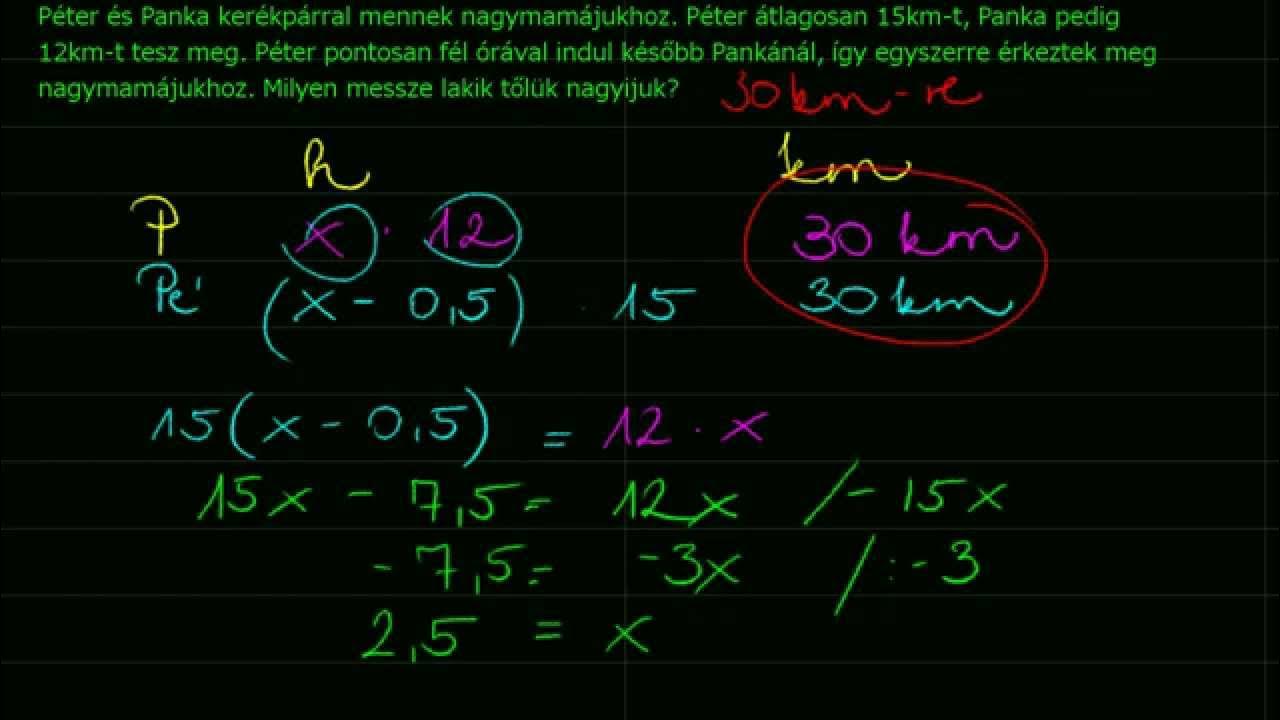 Péter és Panka kerékpárral mennek nagymamájukhoz. Péter átlagosan 15km-t, Panka pedig
12km-t tesz meg. Péter pontosan fél órával indul később Pankánál, így egyszerre érkeztek meg
nagymamájukhoz. Milyen messze lakik tőlük nagyijuk? 30 km-re
h km
P x · 12 30 km
Pé (x - 0,5) · 15 30 km
15(x - 0,5) = 12 · x
15x - 7,5 = 12x /- 15x
- 7,5 = -3x / : - 3
2,5 = x